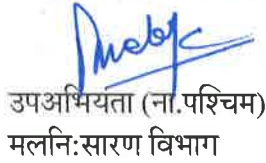 उपअभियंता (ना.पश्चिम)
मलनि:सारण विभाग